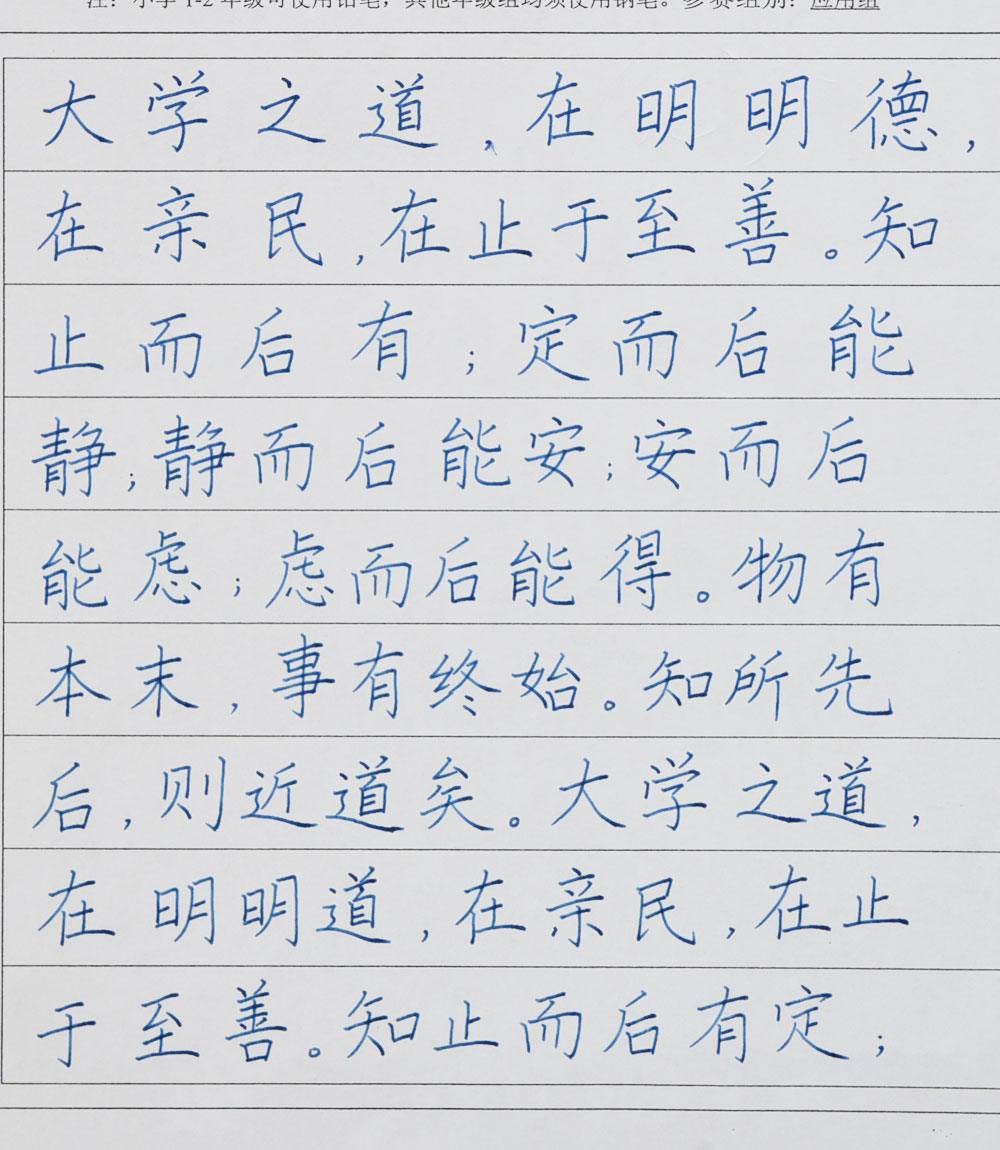 注：小学1-2年级可使用铅笔，其他年级组均须使用钢笔。参赛组别：应用组
大学之道，在明明德，
在亲民，在止于至善。知
止而后有；定而后能
静；静而后能安；安而后
能虑；虑而后能得。物有
本末，事有终始。知所先
后，则近道矣。大学之道，
在明明道，在亲民，在止
于至善。知止而后有定；